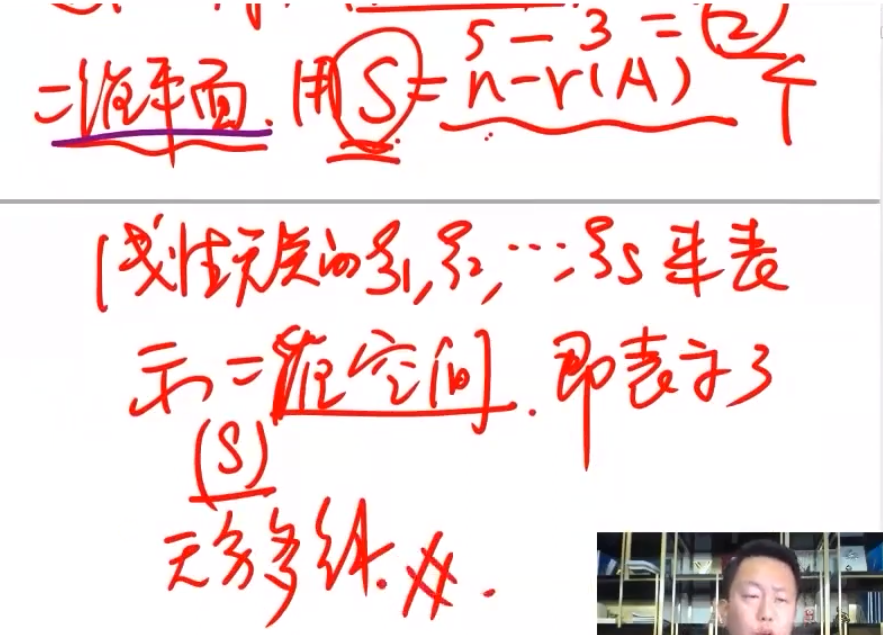 5 - 3 = 2
二维平面. 用 S = n - r(A) 个
线性无关的 ξ1, ξ2, …, ξs 来表
示二维空间. 即表示了
(S)
无穷多组.